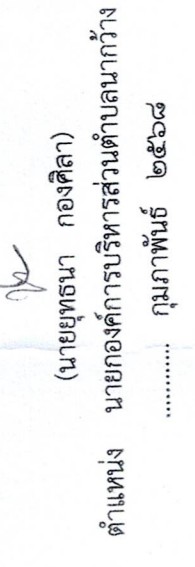 (นายยุทธนา กองศิลา)
ตำแหน่ง นายกองค์การบริหารส่วนตำบลนากว้าง
............. กุมภาพันธ์ ๒๕๖๘